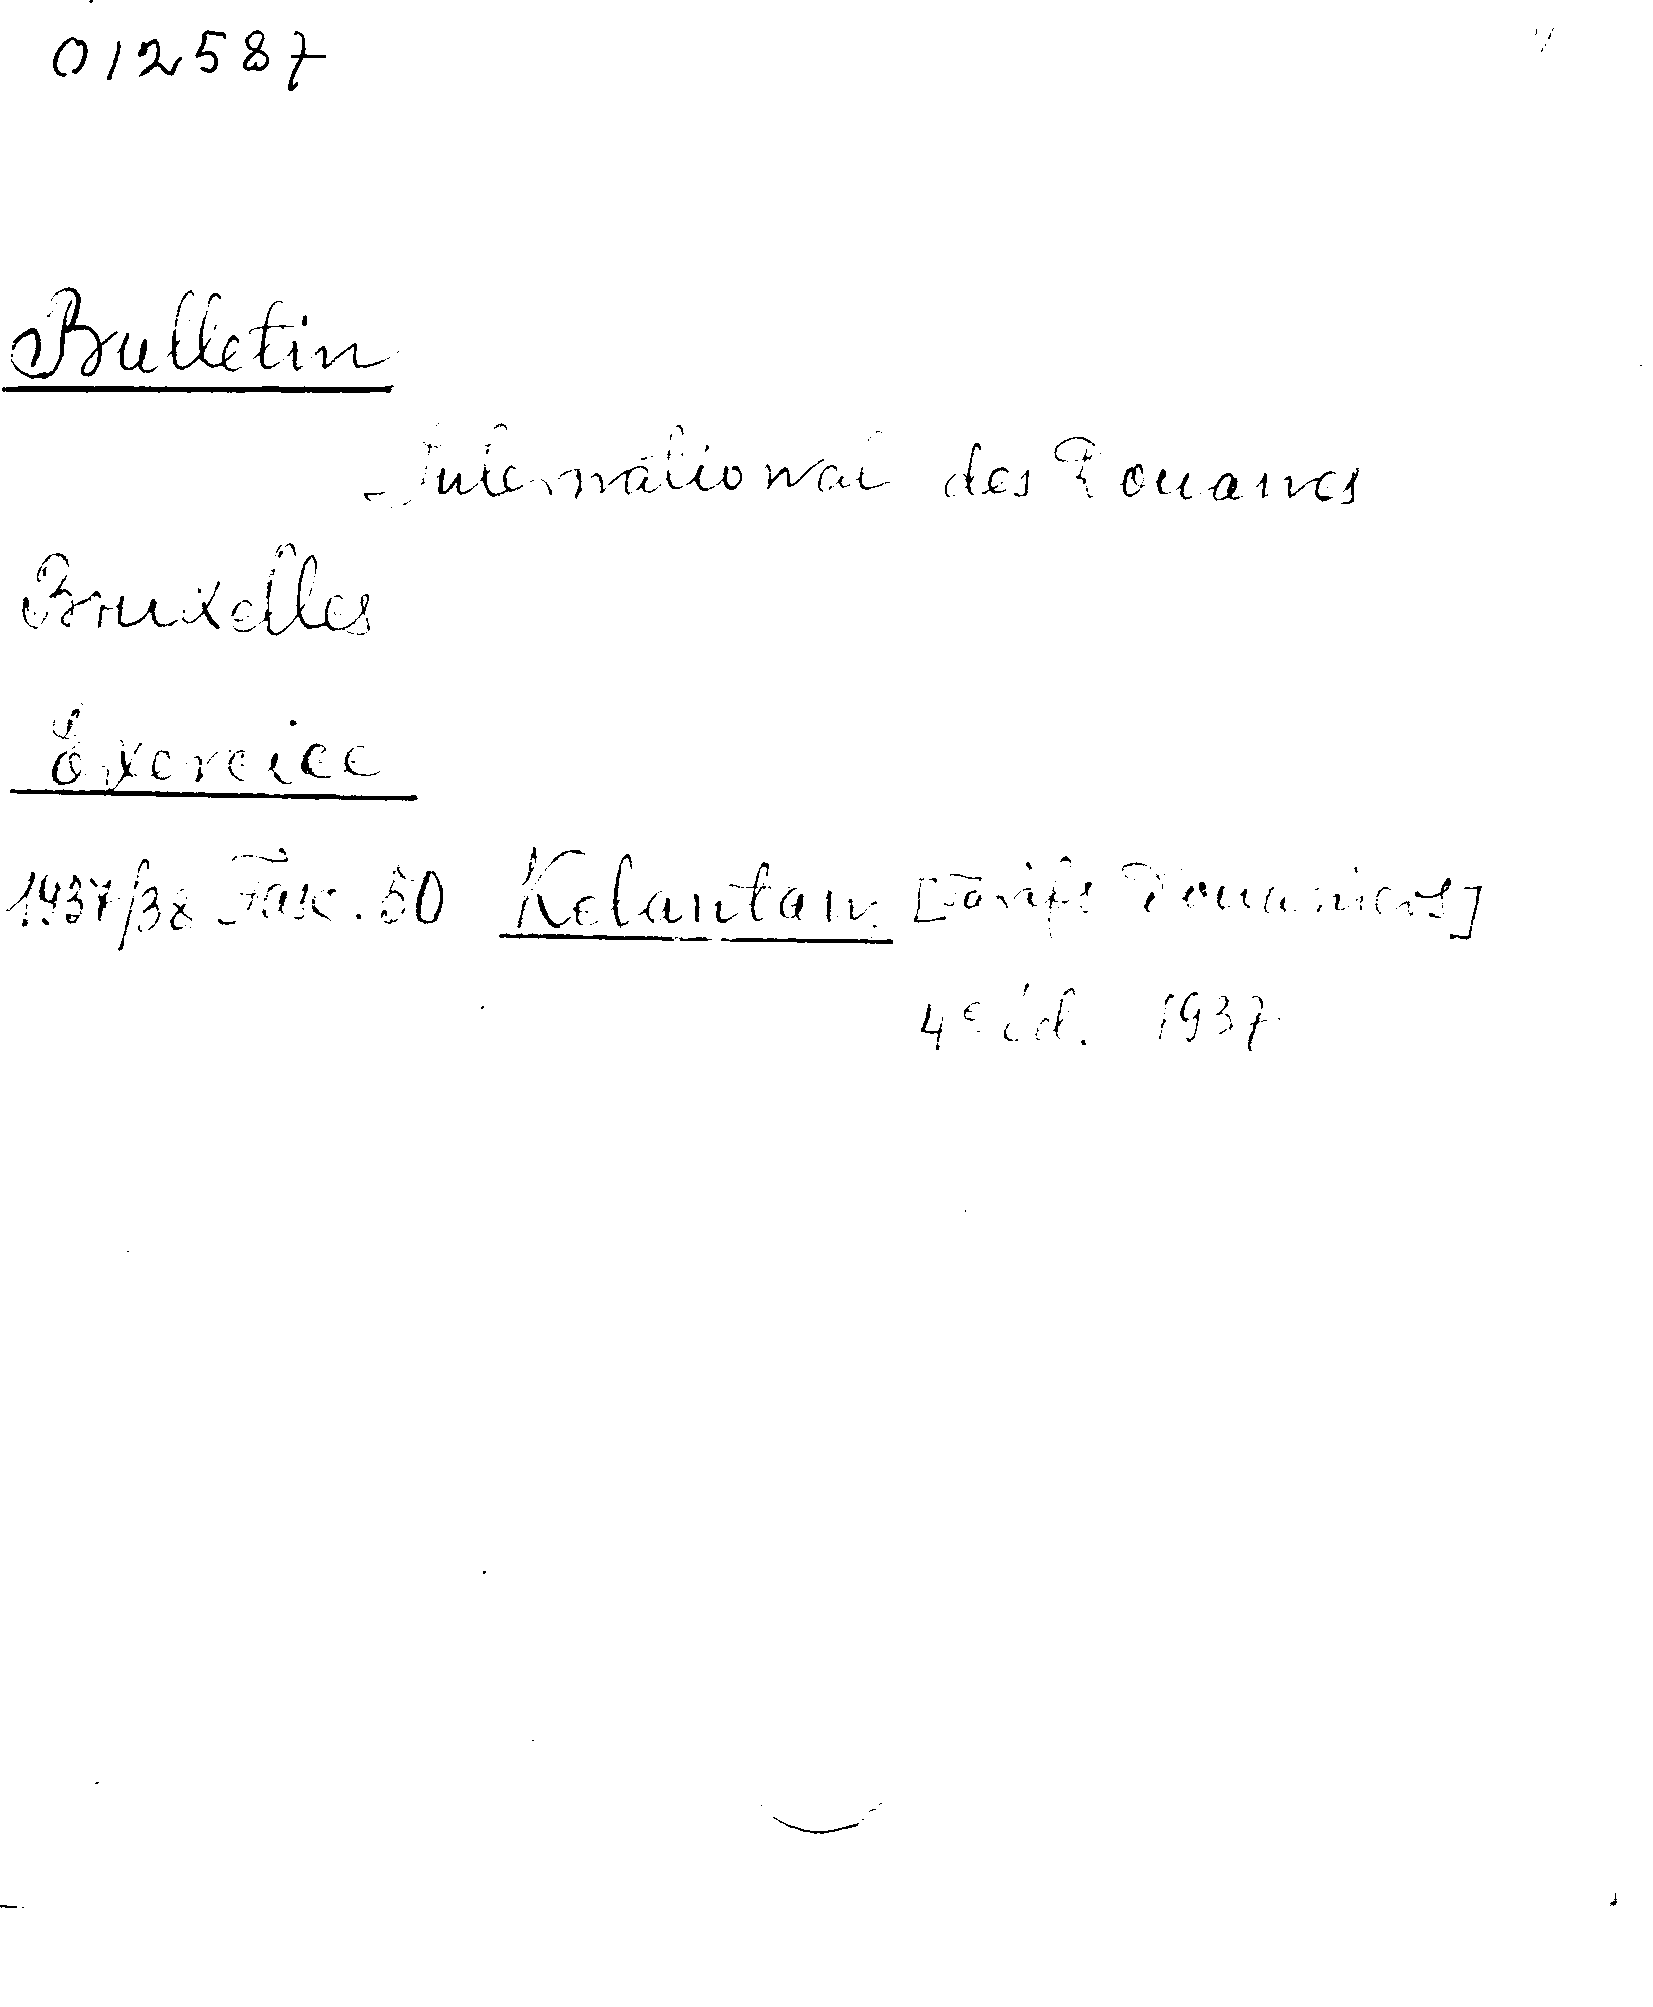 012587
Bulletin
International des Douanes
Bruxelles
Exercice
1937/38 Fasc. 50 Kelantan [Tarifs Douaniers]
4e éd. 1937